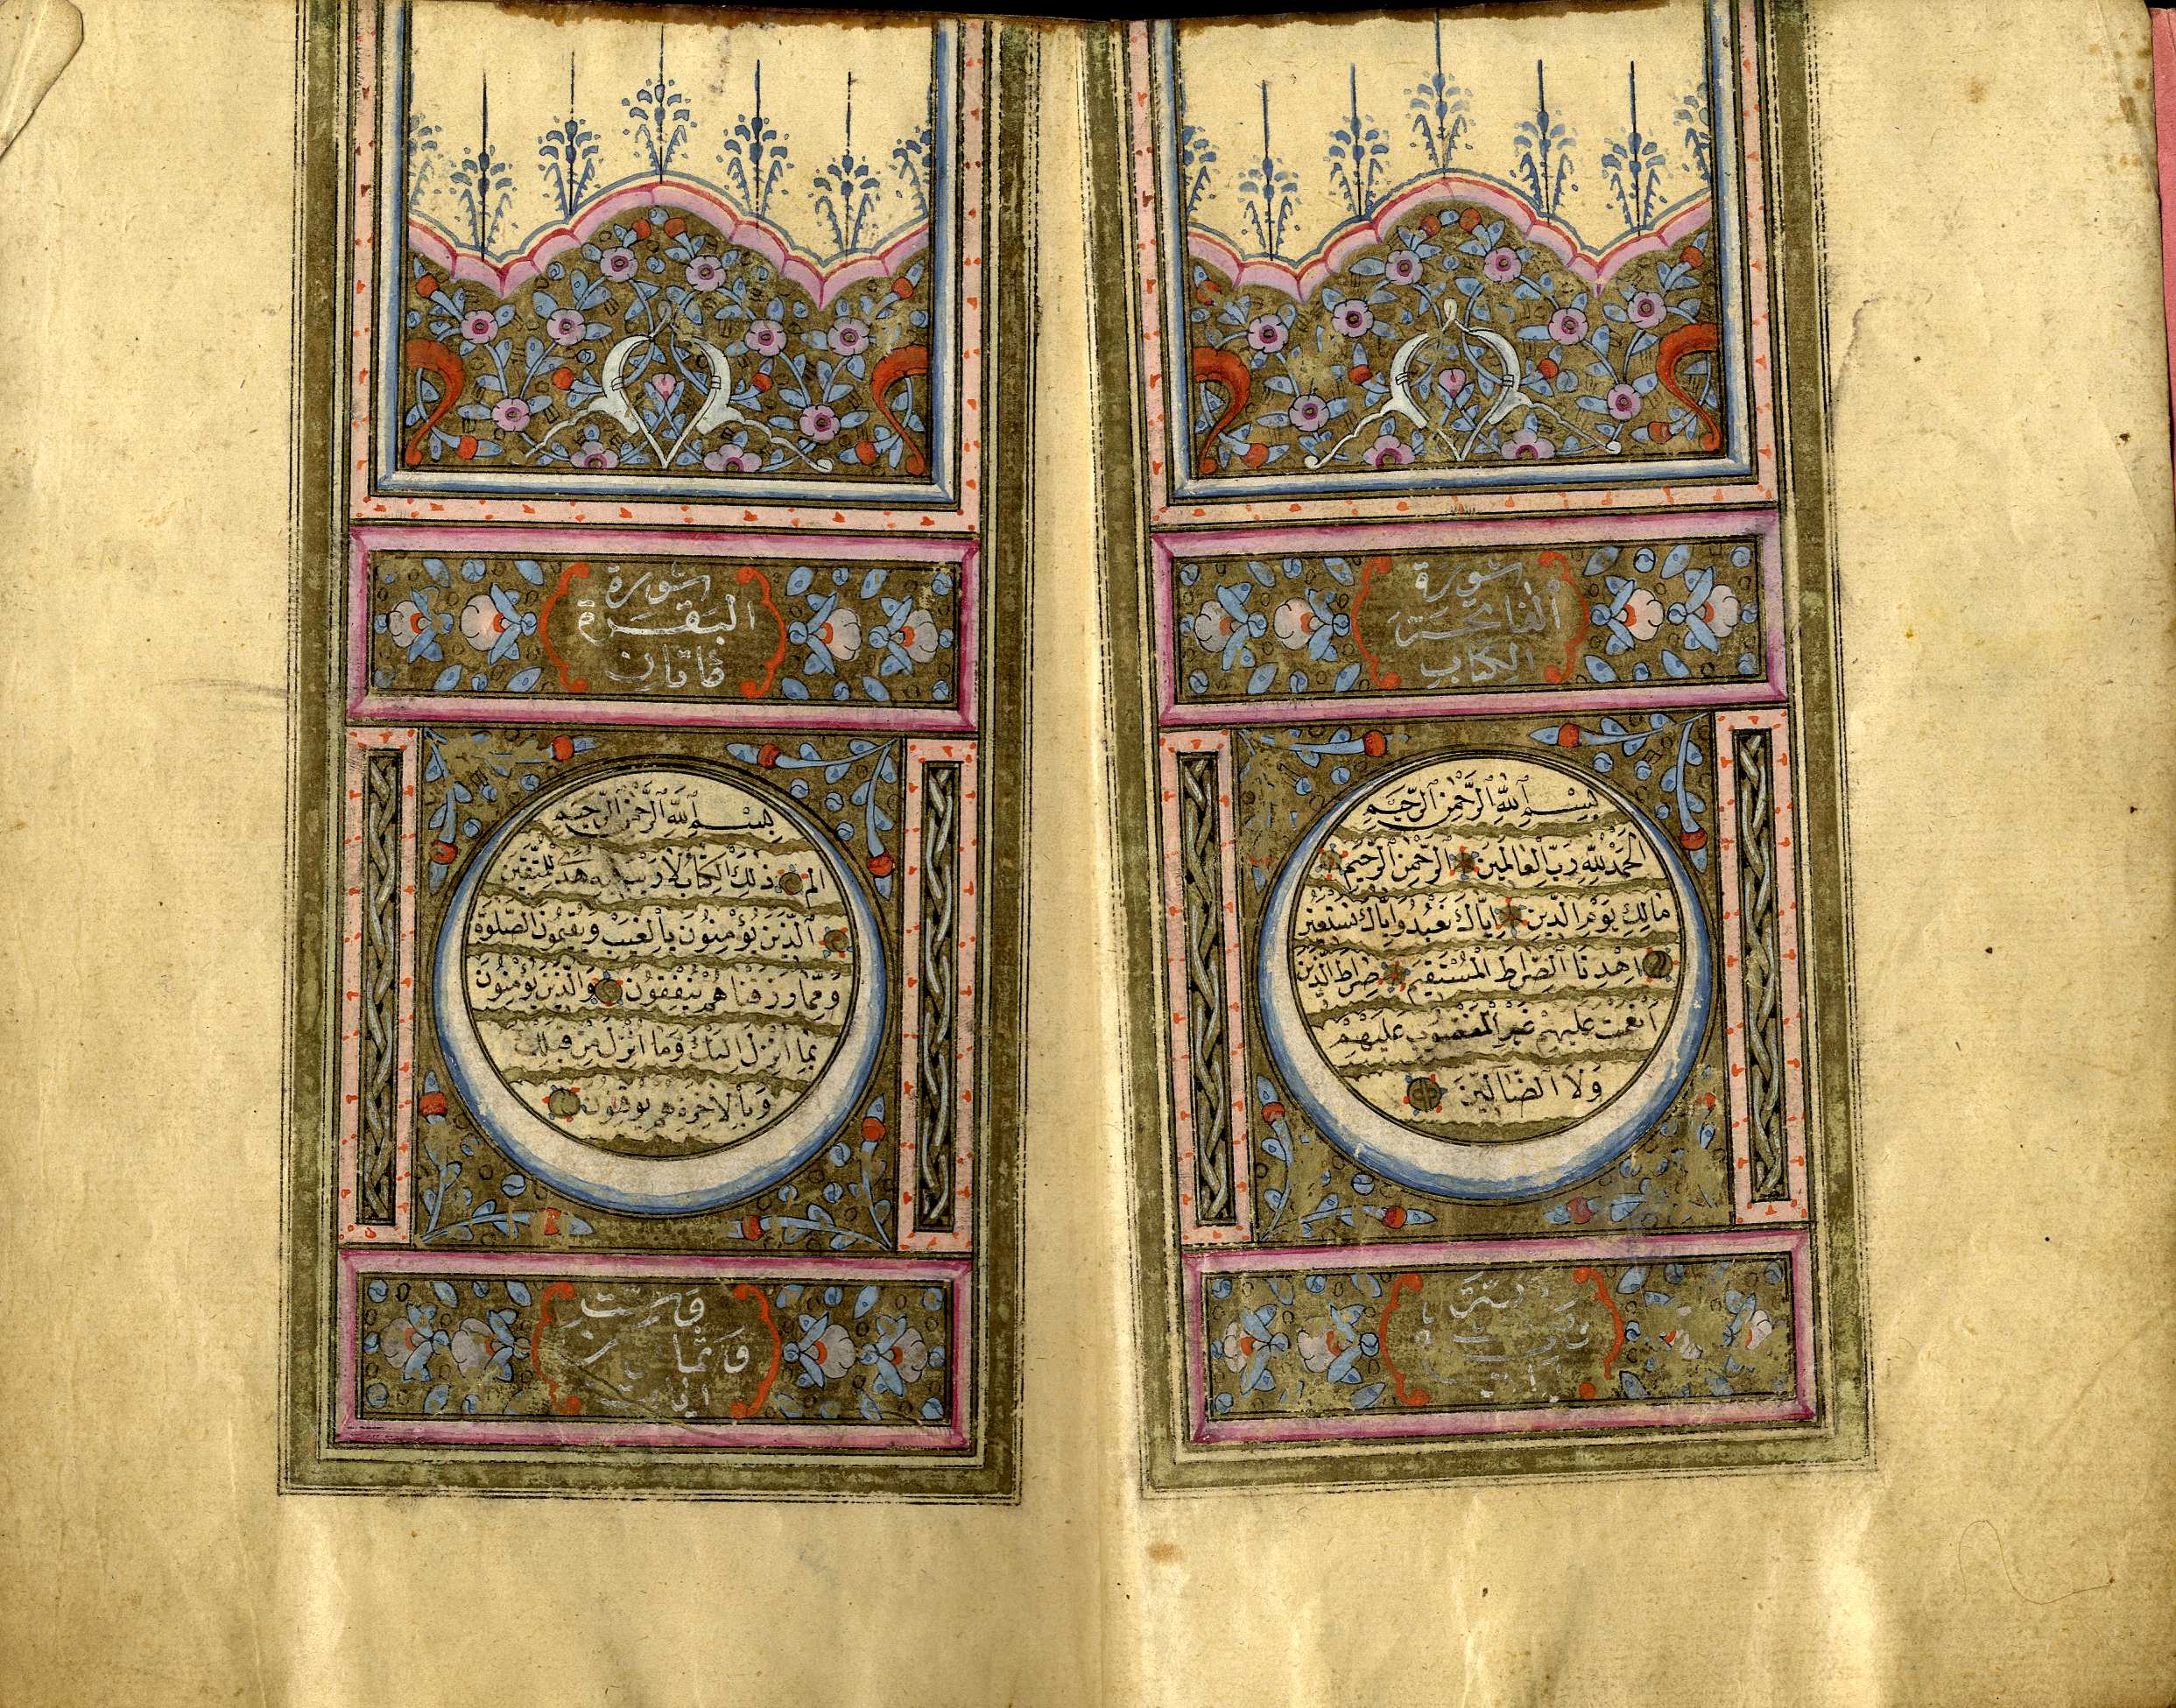 سورة
الفاتحة
الكتاب
بِسْمِ اللهِ الرَّحْمٰنِ الرَّحِيمِ
الْحَمْدُ لِلّٰهِ رَبِّ الْعَالَمِينَ الرَّحْمٰنِ الرَّحِيمِ
مَالِكِ يَوْمِ الدِّينِ اِيَّاكَ نَعْبُدُ وَاِيَّاكَ نَسْتَعِينُ
اِهْدِنَا الصِّرَاطَ الْمُسْتَقِيمَ صِرَاطَ الَّذِينَ
اَنْعَمْتَ عَلَيْهِمْ غَيْرِ الْمَغْضُوبِ عَلَيْهِمْ
وَلَا الضَّالِّينَ
سورة
البقرة
بِسْمِ اللهِ الرَّحْمٰنِ الرَّحِيمِ
الم ذٰلِكَ الْكِتَابُ لَا رَيْبَ فِيهِ هُدًى لِلْمُتَّقِينَ
اَلَّذِينَ يُؤْمِنُونَ بِالْغَيْبِ وَيُقِيمُونَ الصَّلٰوةَ
وَمِمَّا رَزَقْنَاهُمْ يُنْفِقُونَ وَالَّذِينَ يُؤْمِنُونَ
بِمَا اُنْزِلَ اِلَيْكَ وَمَا اُنْزِلَ مِنْ قَبْلِكَ
وَبِالْاٰخِرَةِ هُمْ يُوقِنُونَ